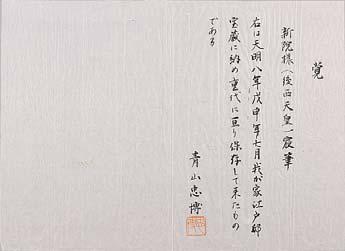 覚
新院様（後西天皇）宸筆
右は天明八年戊申年七月我が家江戸邸
宝蔵に納め重代に亘り保存して来たもの
である
青山忠博